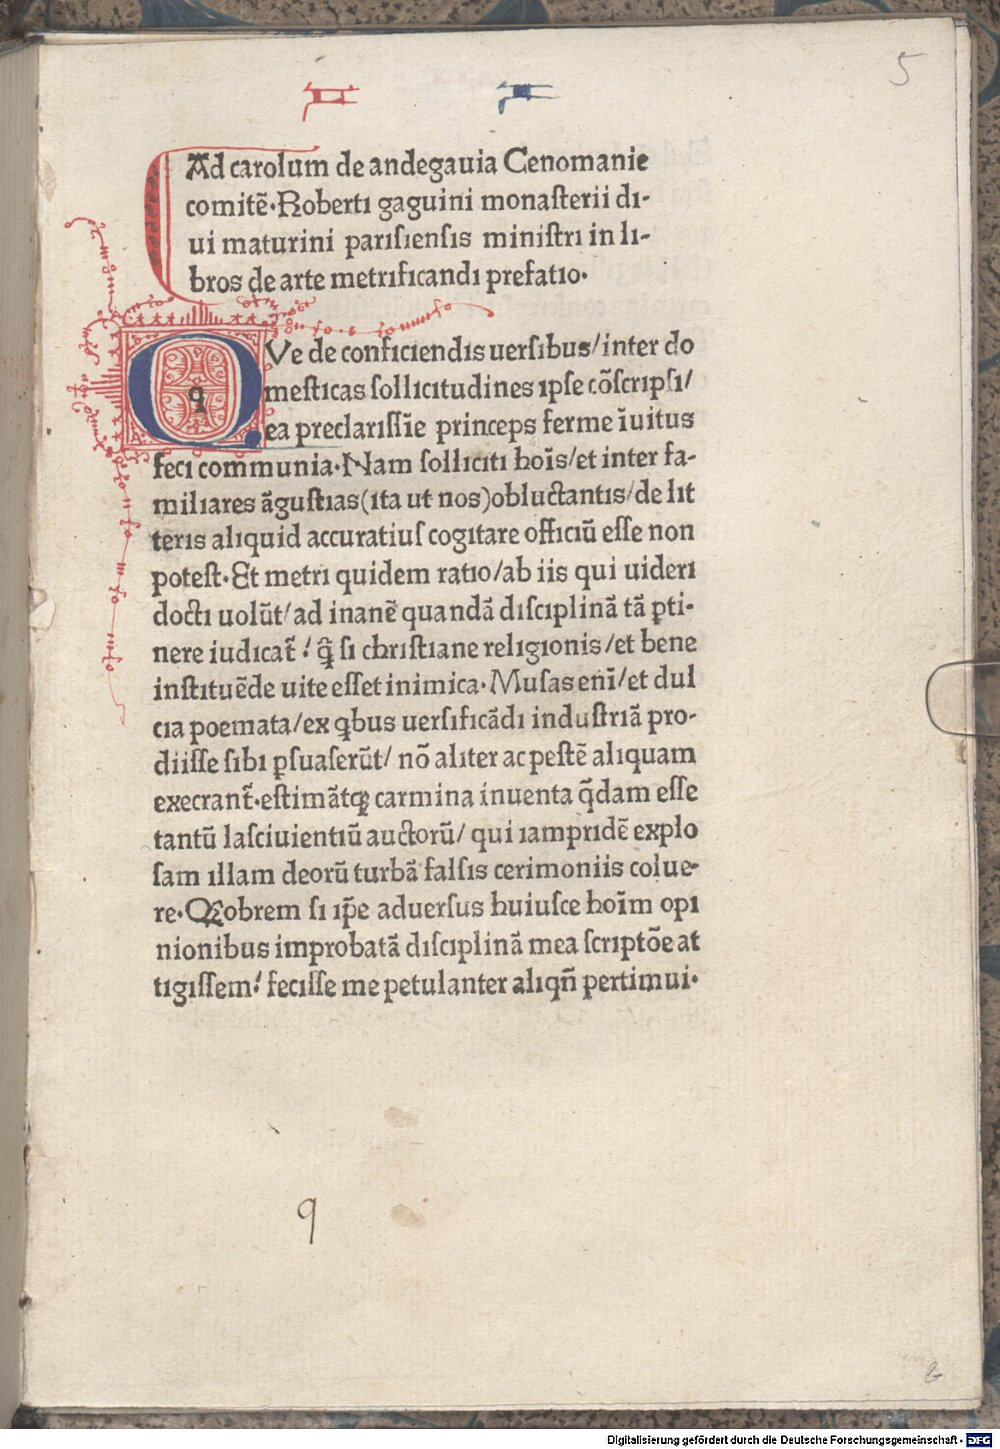 5
Ad carolum de andegauia Cenomanie
comitē·Roberti gaguini monaſterii di-
ui maturini pariſienſis miniſtri in li-
bros de arte metrificandi prefatio·
QVe de conficiendis uerſibus/inter do
meſticas ſollicitudines ipſe cōſcripſi/
ea preclariſſīe princeps ferme īuitus
feci communia·Nam ſolliciti hoīs/et inter fa-
miliares āguſtias(ita ut nos)obluctantis/de lit
teris aliquid accuratiuſ cogitare officiū eſſe non
poteſt·Et metri quidem ratio/ab iis qui uideri
docti uolūt/ad inanē quandā diſciplinā tā ꝑti-
nere iudicat̄ ! q̄ ſi chriſtiane religionis/et bene
inſtituēde uite eſſet inimica·Muſas enī/et dul
cia poemata/ex qbus uerſificādi induſtriā pro-
diiſſe ſibi ꝑſuaſerūt/ nō aliter ac peſtē aliquam
execrant̄·eſtimātqꝫ carmina inuenta q̄dam eſſe
tantū laſciuientiū auctorū/ qui iampridē explo
ſam illam deorū turbā falſis cerimoniis colue-
re·Qꝫobrem ſi ip̄e aduerſus huiuſce hoīm opi
nionibus improbatā diſciplinā mea ſcriptōe at
tigiſſem! feciſſe me petulanter aliqn̄ pertimui·
9
Digitalisierung gefördert durch die Deutsche Forschungsgemeinschaft - DFG